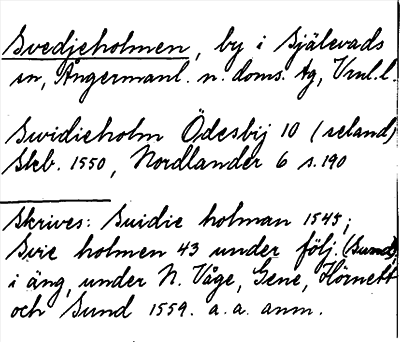 Svedjeholmen, by i Själevads
sn, Ångermanl. n. doms. tg, Vnl.l.
Swidieholm Ödesbij 10 (seland)
Skb. 1550, Nordlander 6 s.190
Skrives: Suidie holman 1545;
Svie holmen 43 under följ. (Sund),
i äng, under N. Våge, Gene, Hörnett
och Sund 1559. a. a. anm.